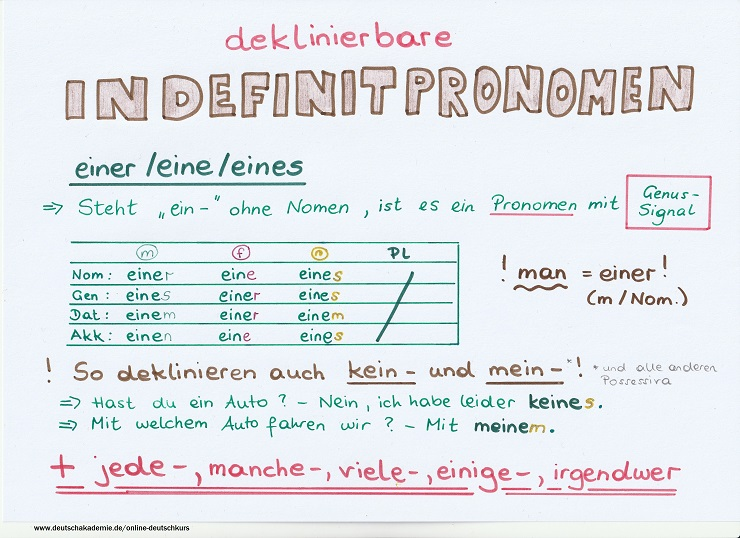 deklinierbare
INDEFINITPRONOMEN
einer / eine / eines
⇒ Steht „ein-" ohne Nomen, ist es ein Pronomen mit Genus-Signal
m f n PL
Nom: einer eine eines
Gen: eines einer eines
Dat: einem einer einem
Akk: einen eine eines
! man = einer!
(m/Nom.)
! So deklinieren auch kein- und mein-*! * und alle anderen Possessiva
⇒ Hast du ein Auto? - Nein, ich habe leider keines.
⇒ Mit welchem Auto fahren wir? - Mit meinem.
+ jede-, manche-, viele-, einige-, irgendwer
www.deutschakademie.de/online-deutschkurs